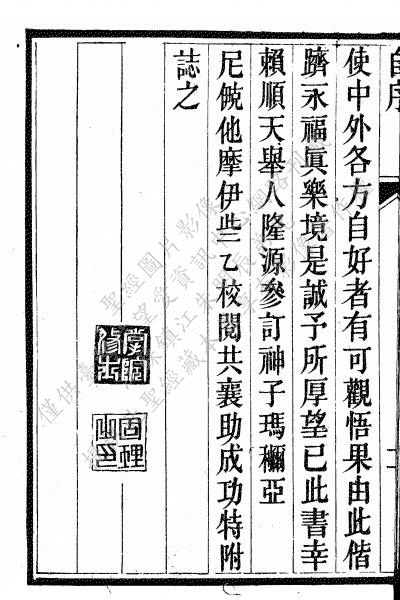 自序
使中外各方自好者有可觀悟果由此偕
躋永福眞樂境是誠予所厚望已此書幸
賴順天舉人隆源參訂神子瑪穪亞
尼僥他摩伊些乙校閱共襄助成功特附
誌之
固裡